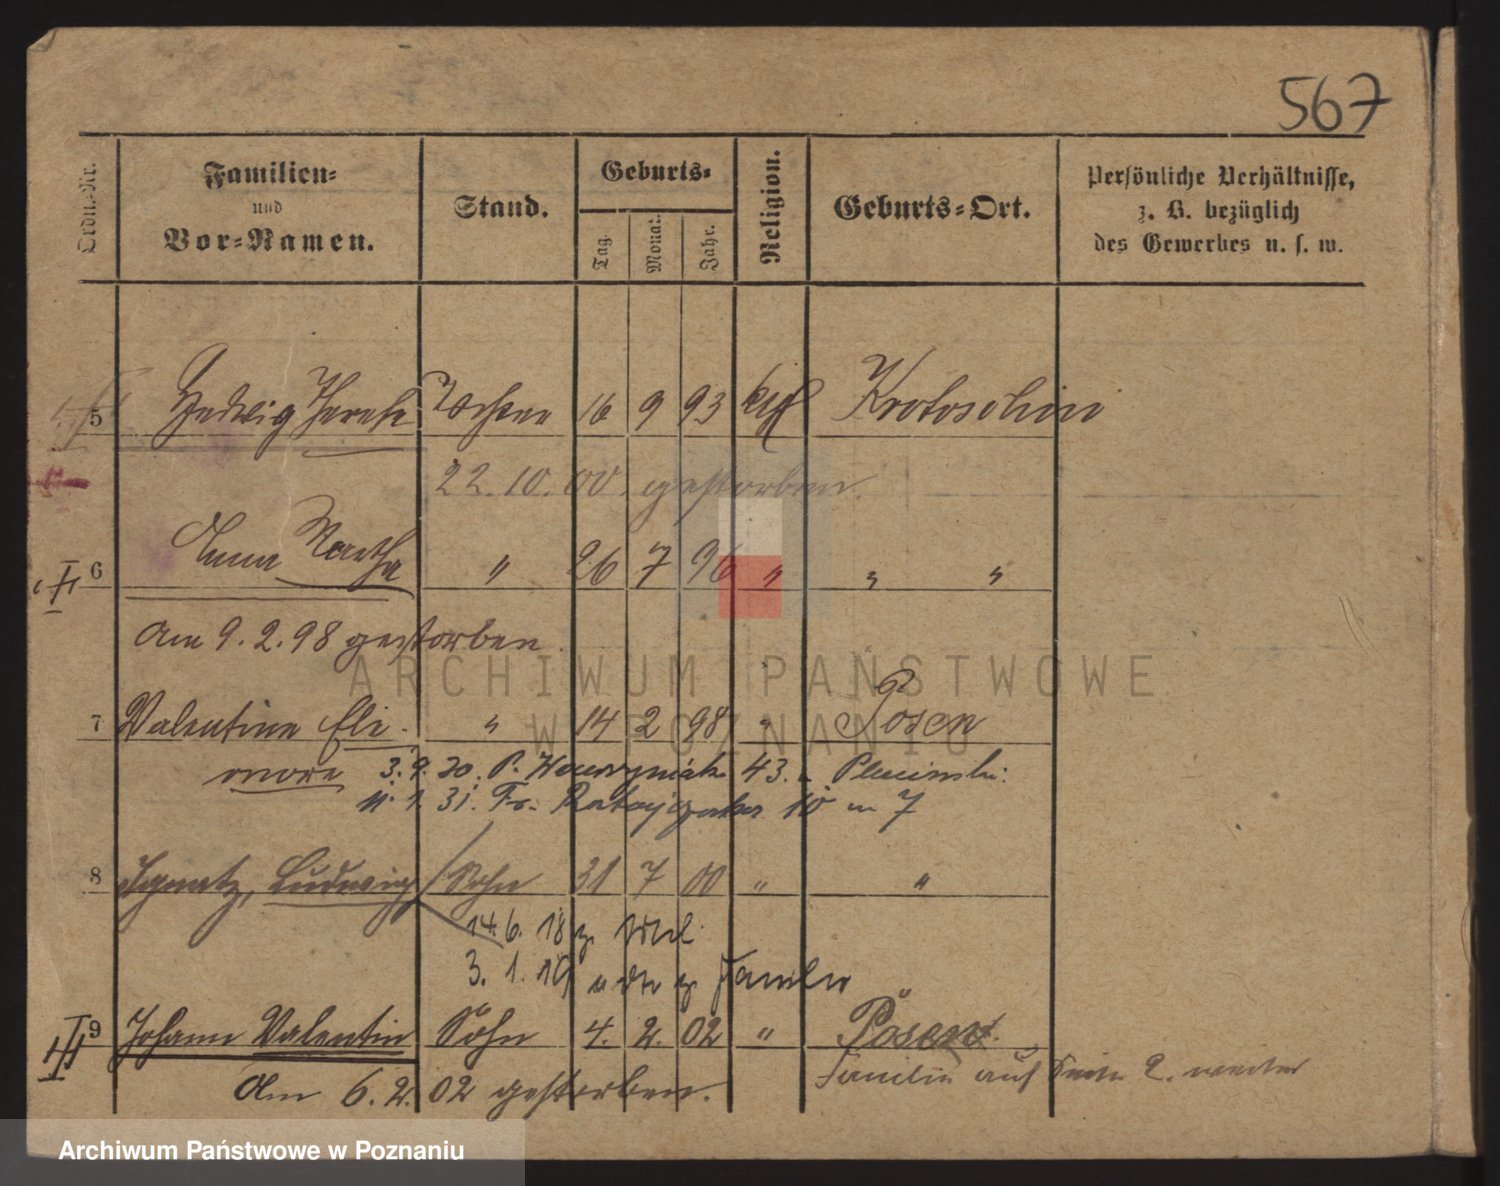 567
Ordn.-Nr.
Familien-
und
Vor-Namen.
Stand.
Geburts-
Tag.
Monat.
Jahr.
Religion.
Geburts-Ort.
Persönliche Verhältnisse,
z. B. bezüglich
des Gewerbes u. s. w.
5 Hedwig Therese Tochter 16 9 93 kath Krotoschin
22.10.00. gestorben.
6 Anna Martha " 26 7 96 " " "
Am 9.2.98 gestorben.
ARCHIWUM PAŃSTWOWE
W POZNANIU
7 Valentine Ele- " 14 2 98 " Posen
onore 3.9.30. P. Wawrzyniaka 43.
11.1.31. Fr. Ratajczaka 10 m 7
8 Ignatz, Ludwig Sohn 31 7 00 " "
14.6.18 z.
3.1.19 z Familie
9 Johann Valentin Sohn 4. 2. 02 " Posen
Am 6.2.02 gestorben.
Familie auf Seite 2. weiter
Archiwum Państwowe w Poznaniu